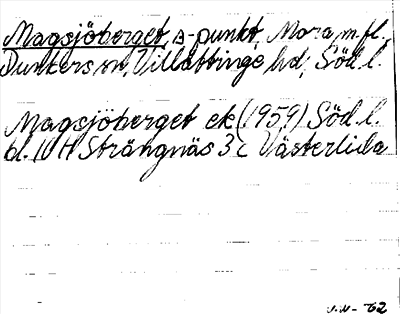 Magsjöberget, s-punkt, Mora m.fl.,
Dunkers sn, Villåttinge hd, Söd.l.
Magsjöberget ek (1959) Söd.l.
bl. 10 H Strängnäs 3 c Västerlida
V.N-62